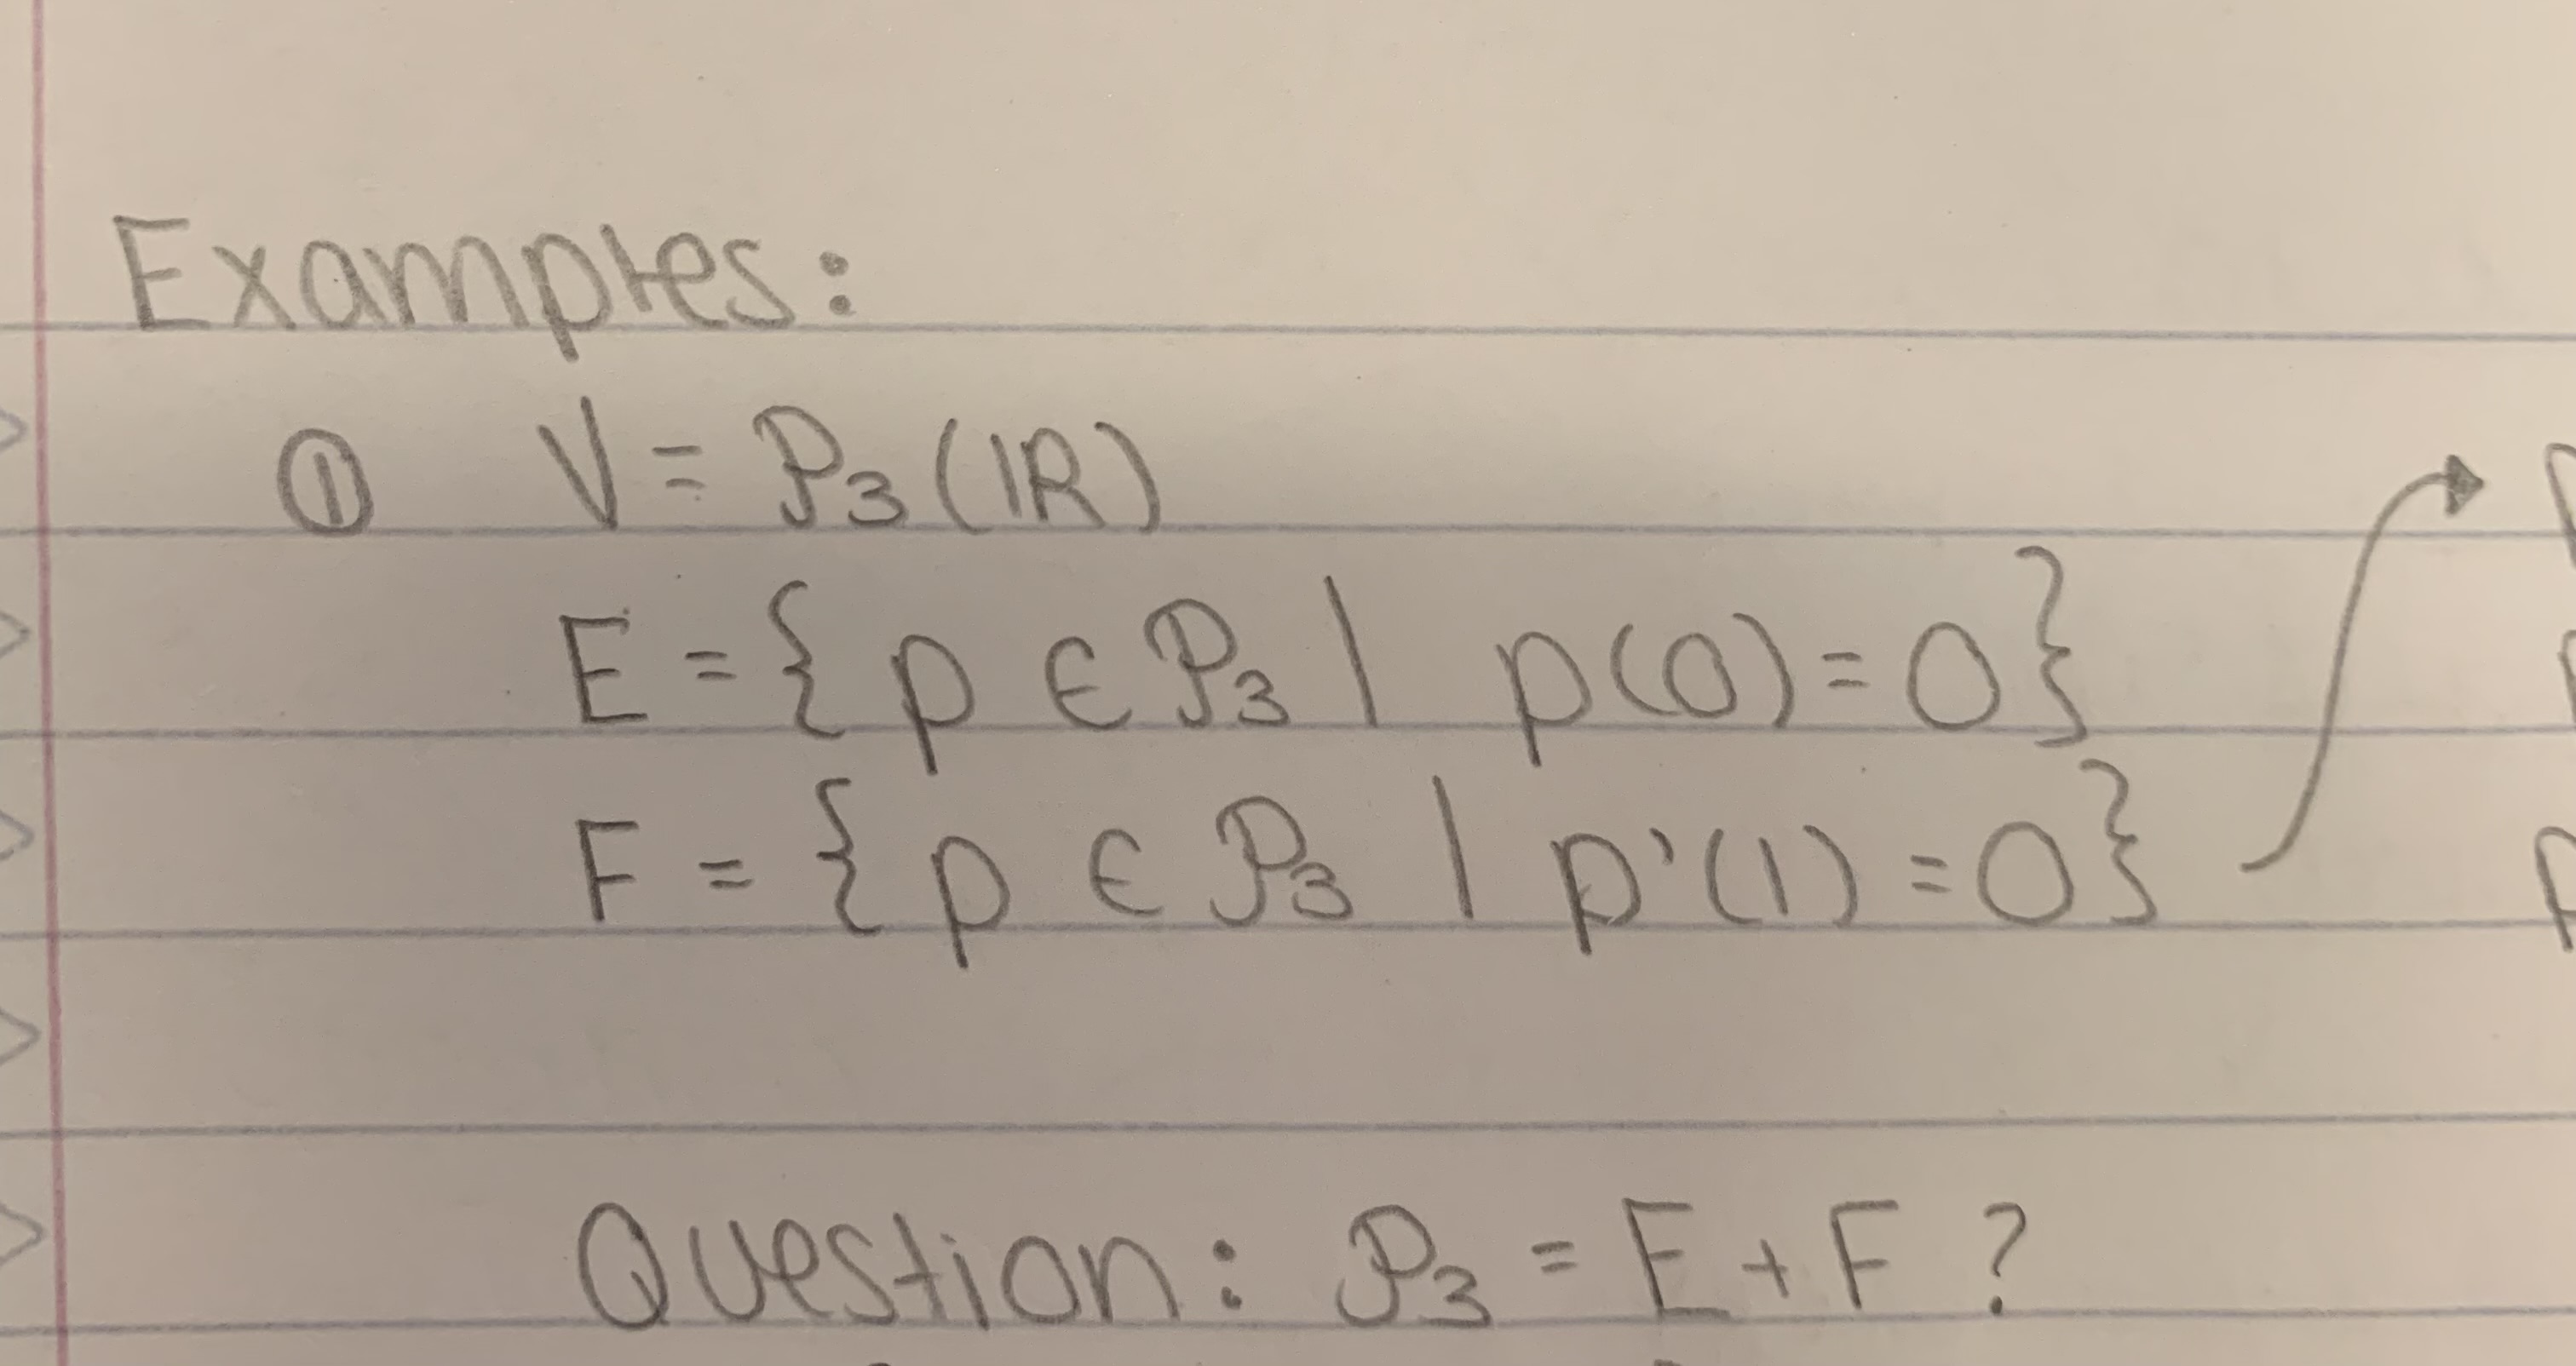 Examples:
① V = P₃(ℝ)
E = { p ∈ P₃ | p(0) = 0}
F = { p ∈ P₃ | p'(1) = 0}
Question: P₃ = E + F ?